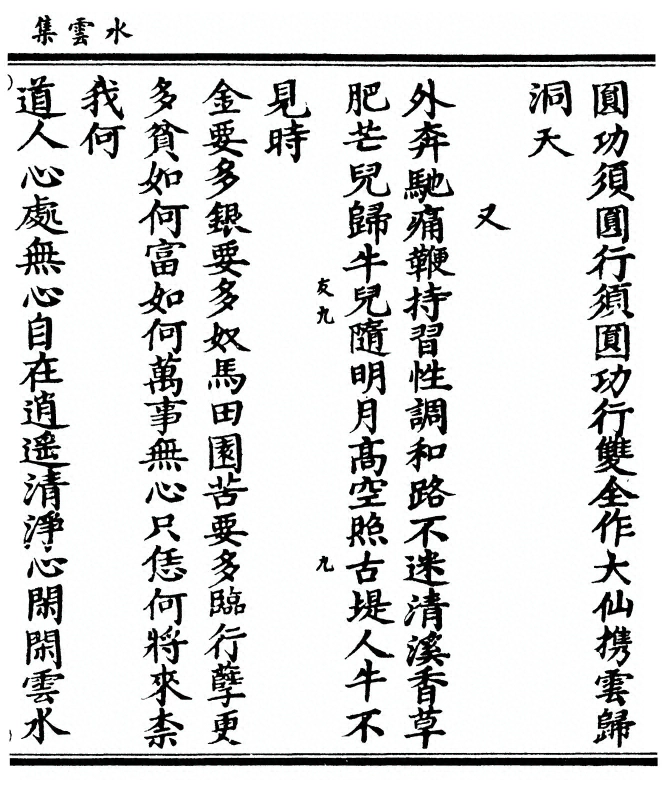 水雲集
圓功須圓行須圓功行雙全作大仙携雲歸
洞天
又
外奔馳痛鞭持習性調和路不迷清溪香草
肥芒兒歸牛兒隨明月高空照古堤人牛不
友九
九
見時
金要多銀要多奴馬田園苦要多臨行孽更
多貧如何富如何萬事無心只恁何將來柰
我何
道人心處無心自在逍遥清淨心閑閑雲水